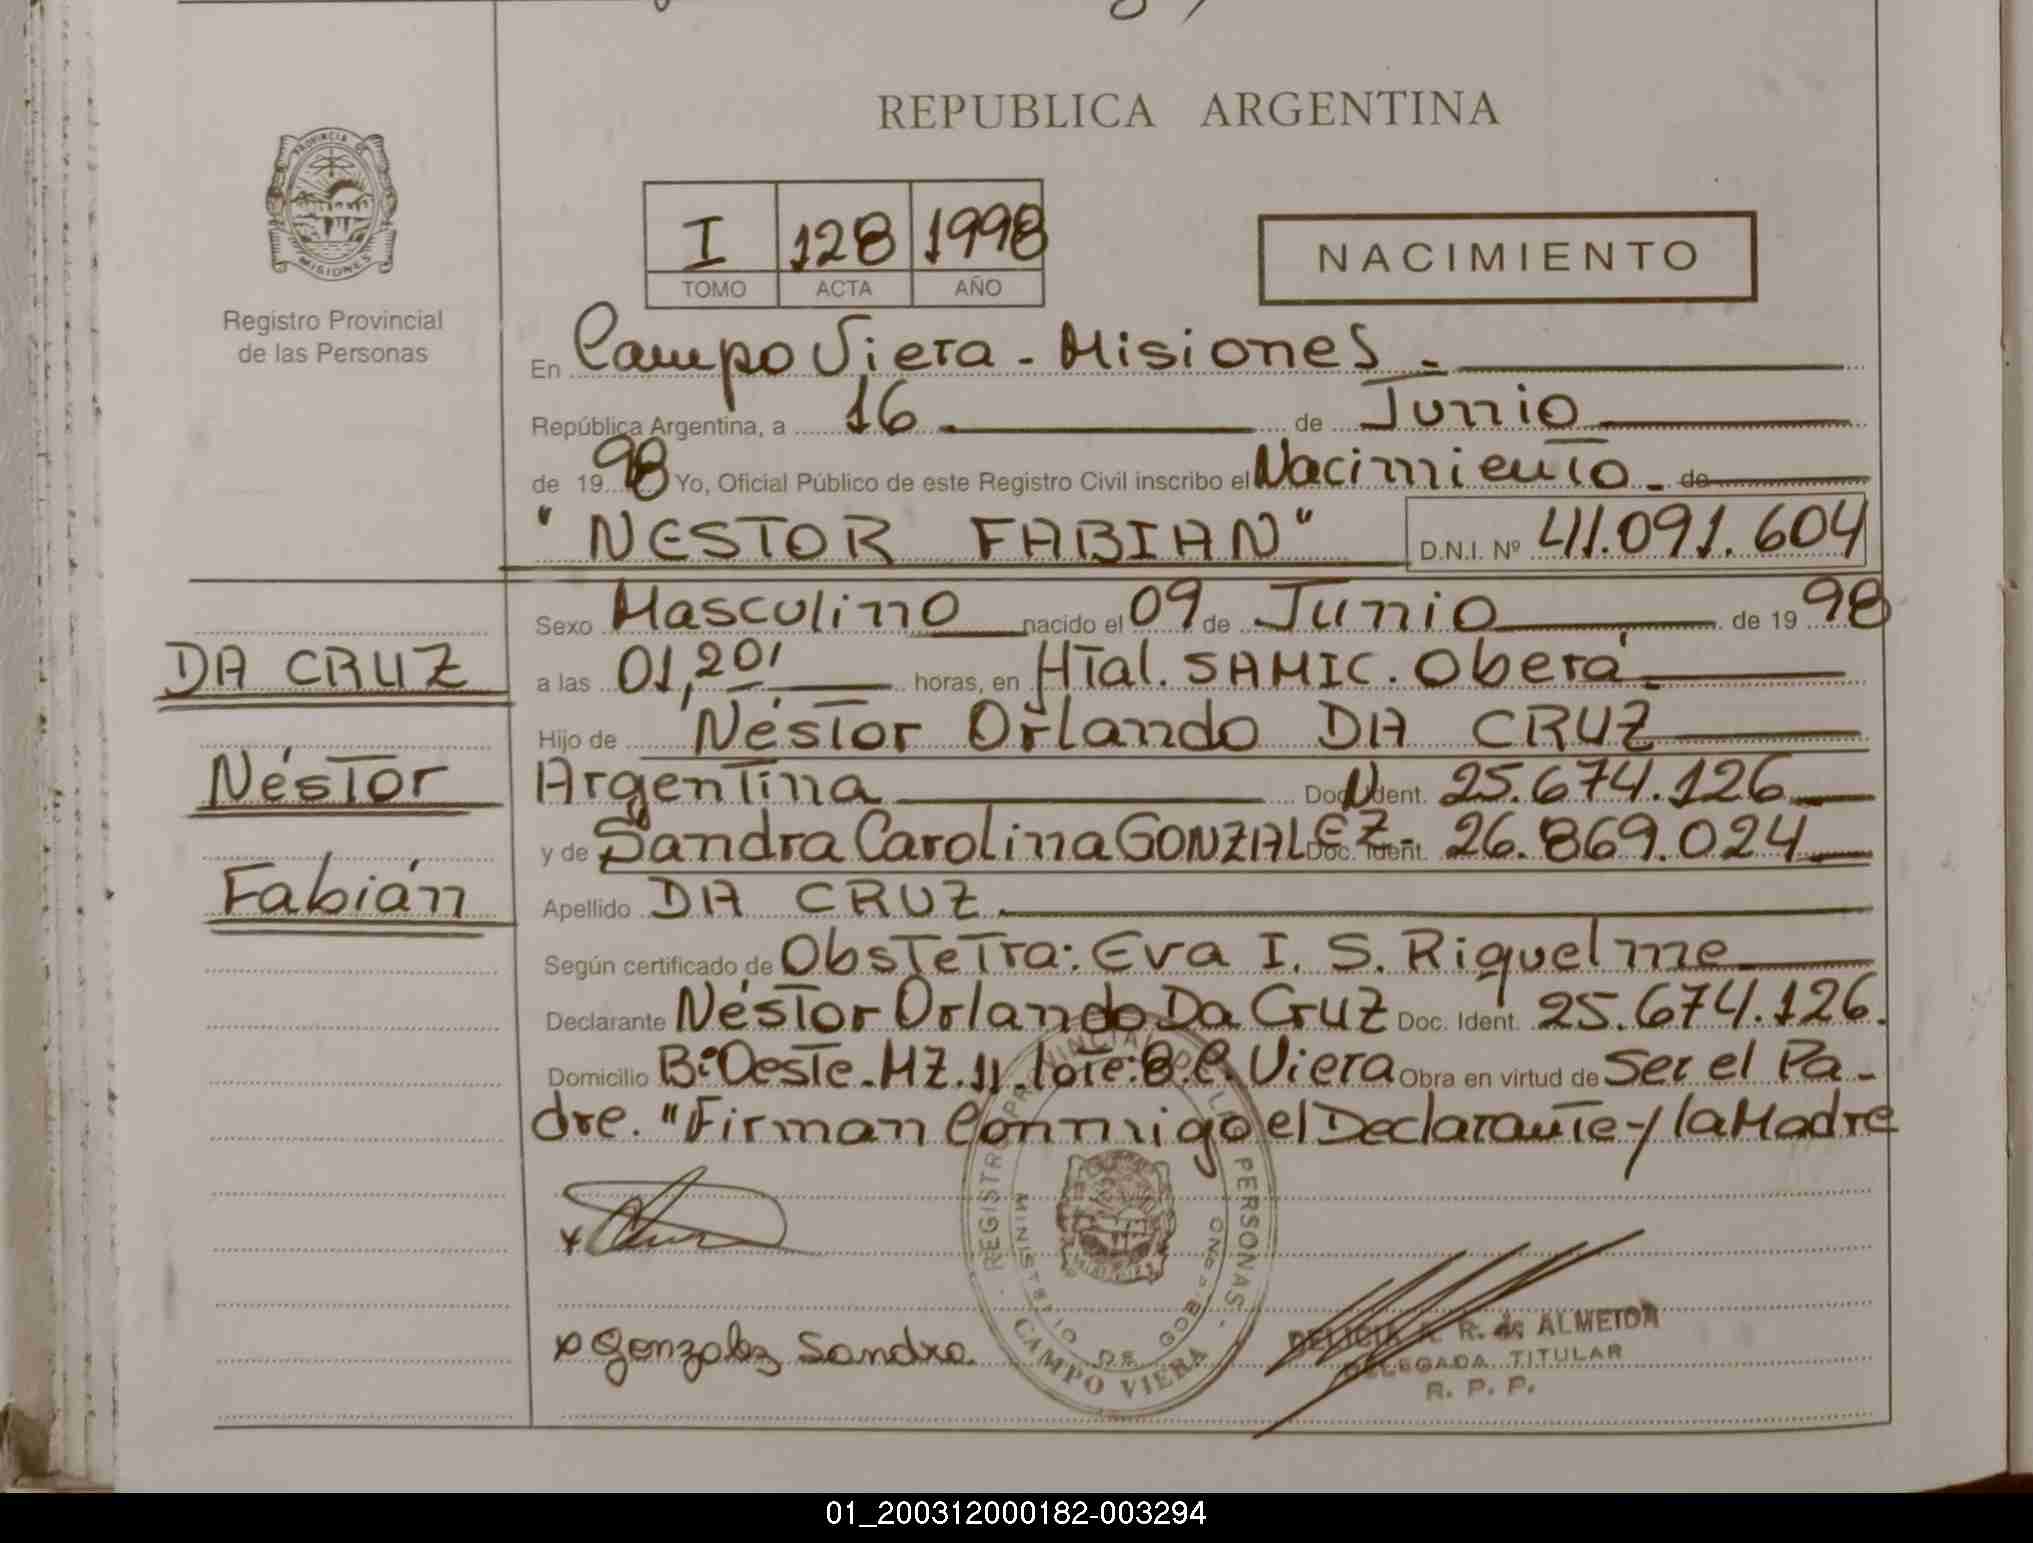 REPUBLICA ARGENTINA
PROVINCIA DE
MISIONES
Registro Provincial
de las Personas
I 128 1998
TOMO ACTA AÑO
NACIMIENTO
En Campo Viera - Misiones -
República Argentina, a 16 de Junio
de 1998 Yo, Oficial Público de este Registro Civil inscribo el Nacimiento - de
"NESTOR FABIAN" D.N.I. Nº 41.091.604
Sexo Masculino nacido el 09 de Junio de 1998
DA CRUZ
a las 01,20' horas, en Htal. SAMIC. Oberá
Hijo de Néstor Orlando DA CRUZ
Néstor
Argentina Doc. Ident. N 25.674.126
y de Sandra Carolina GONZALEZ- Doc. Ident. 26.869.024
Fabián
Apellido DA CRUZ
Según certificado de Obstetra: Eva I. S. Riquelme
Declarante Néstor Orlando Da Cruz Doc. Ident. 25.674.126.
Domicilio Bº Oeste. MZ. 11. lote: 8. C. Viera Obra en virtud de Ser el Pa-
dre. "Firman Conmigo el Declarante y la Madre
x
x Gonzalez Sandra
REGISTRO PROVINCIAL DE LAS PERSONAS
MINISTERIO DE GOBIERNO
CAMPO VIERA
DELICIA R. de ALMEIDA
DELEGADA TITULAR
R. P. P.
01_200312000182-003294